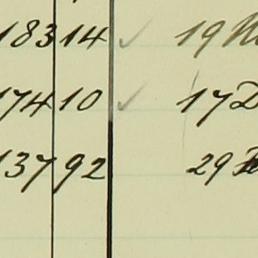 18314 ✓ 19
17410 ✓ 17
13792 29